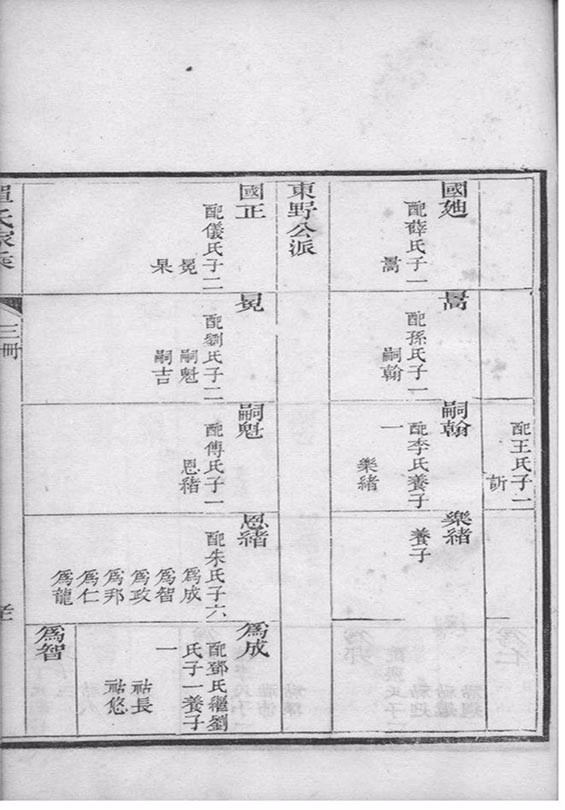 配王氏子一
訢
國
配薛氏子一
暠
暠
配孫氏子一
嗣翰
嗣翰
配李氏養子
一
樂緒
樂緒
養子
東野公派
國正
配儀氏子二
冕
杲
冕
配劉氏子二
嗣魁
嗣吉
嗣魁
配傅氏子一
恩緒
恩緒
配朱氏子六
爲成
爲智
爲政
爲邦
爲仁
爲龍
爲成
配鄧氏繼劉
氏子一養子
一
祜長
祜悠
爲智
氏家乘
三冊